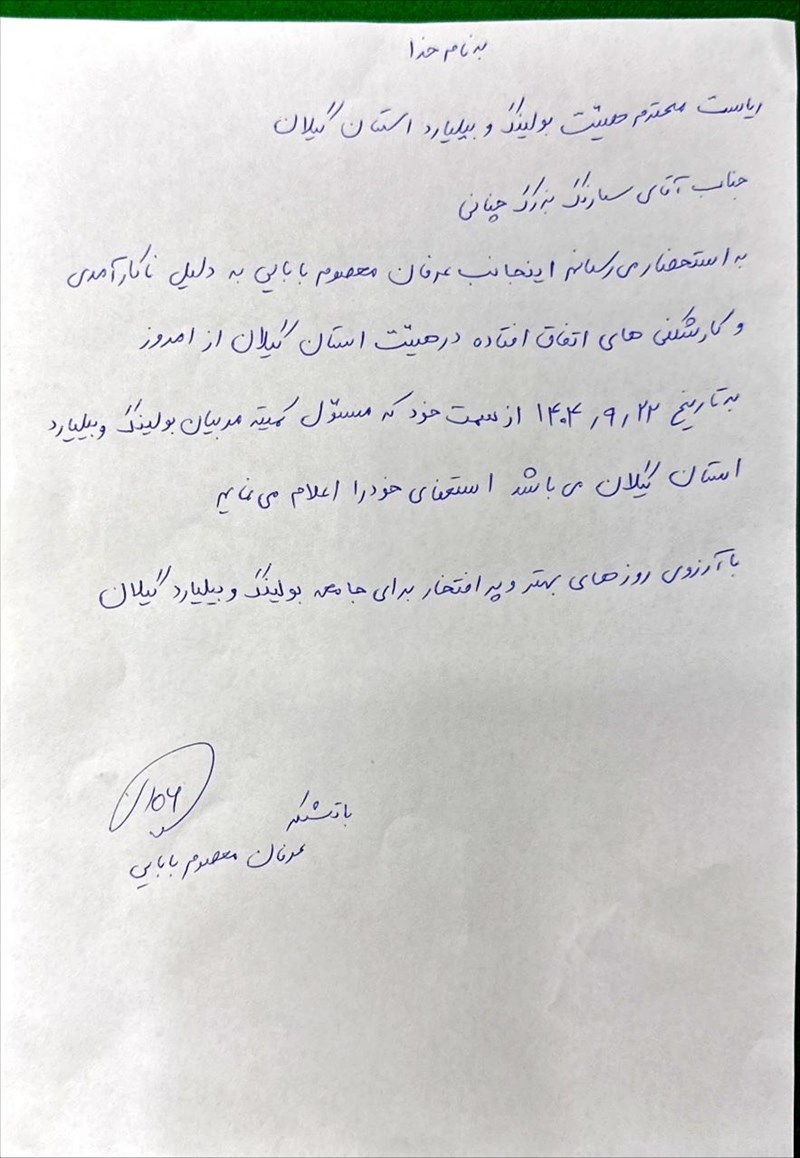 به نام خدا
ریاست محترم هیئت بولینگ و بیلیارد استان گیلان
جناب آقای سارنگ بزرگ چنانی
به استحضار می رسانم اینجانب عرفان معصوم بابایی به دلیل ناکارآمدی
و کارشکنی های اتفاق افتاده در هیئت استان گیلان از امروز
به تاریخ ۱۴۰۴٫۹٫۲۲ از سمت خود که مسئول کمیته مربیان بولینگ و بیلیارد
استان گیلان می باشد استعفای خود را اعلام می نمایم
با آرزوی روزهای بهتر و پر افتخار برای جامعه بولینگ و بیلیارد گیلان
با تشکر
عرفان معصوم بابایی